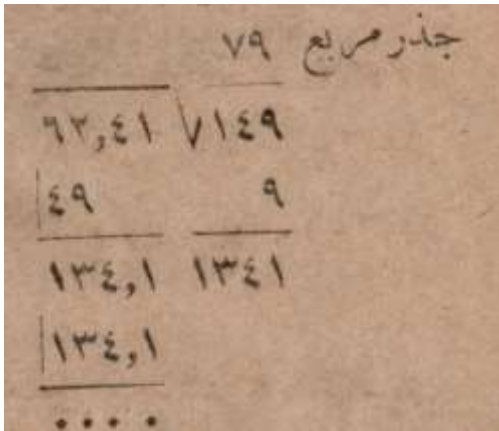 جذر مربع ٧٩
٦٢,٤١ √١٤٩
٤٩ ٩
١٣٤,١ ١٣٤١
١٣٤,١
٠٠٠٠